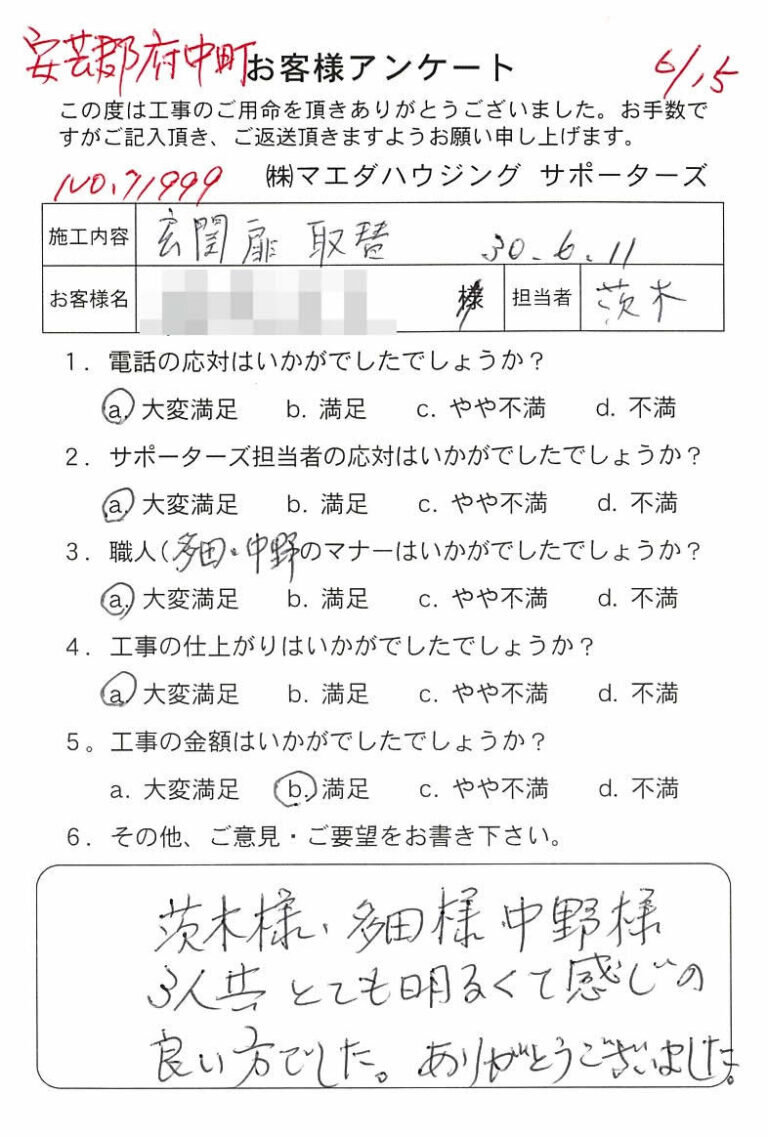 安芸郡府中町 お客様アンケート 6/15
この度は工事のご用命を頂きありがとうございました。お手数で
すがご記入頂き、ご返送頂きますようお願い申し上げます。
NO.71999 ㈱マエダハウジング サポーターズ
施工内容 玄関扉 取替 30.6.11
お客様名 様 担当者 茨木
1. 電話の応対はいかがでしたでしょうか？
a. 大変満足 b. 満足 c. やや不満 d. 不満
2. サポーターズ担当者の応対はいかがでしたでしょうか？
a. 大変満足 b. 満足 c. やや不満 d. 不満
3. 職人(多田・中野のマナーはいかがでしたでしょうか？
a. 大変満足 b. 満足 c. やや不満 d. 不満
4. 工事の仕上がりはいかがでしたでしょうか？
a. 大変満足 b. 満足 c. やや不満 d. 不満
5。工事の金額はいかがでしたでしょうか？
a. 大変満足 b. 満足 c. やや不満 d. 不満
6. その他、ご意見・ご要望をお書き下さい。
茨木様、多田様 中野様
3人共 とても明るくて感じの
良い方でした。ありがとうございました。